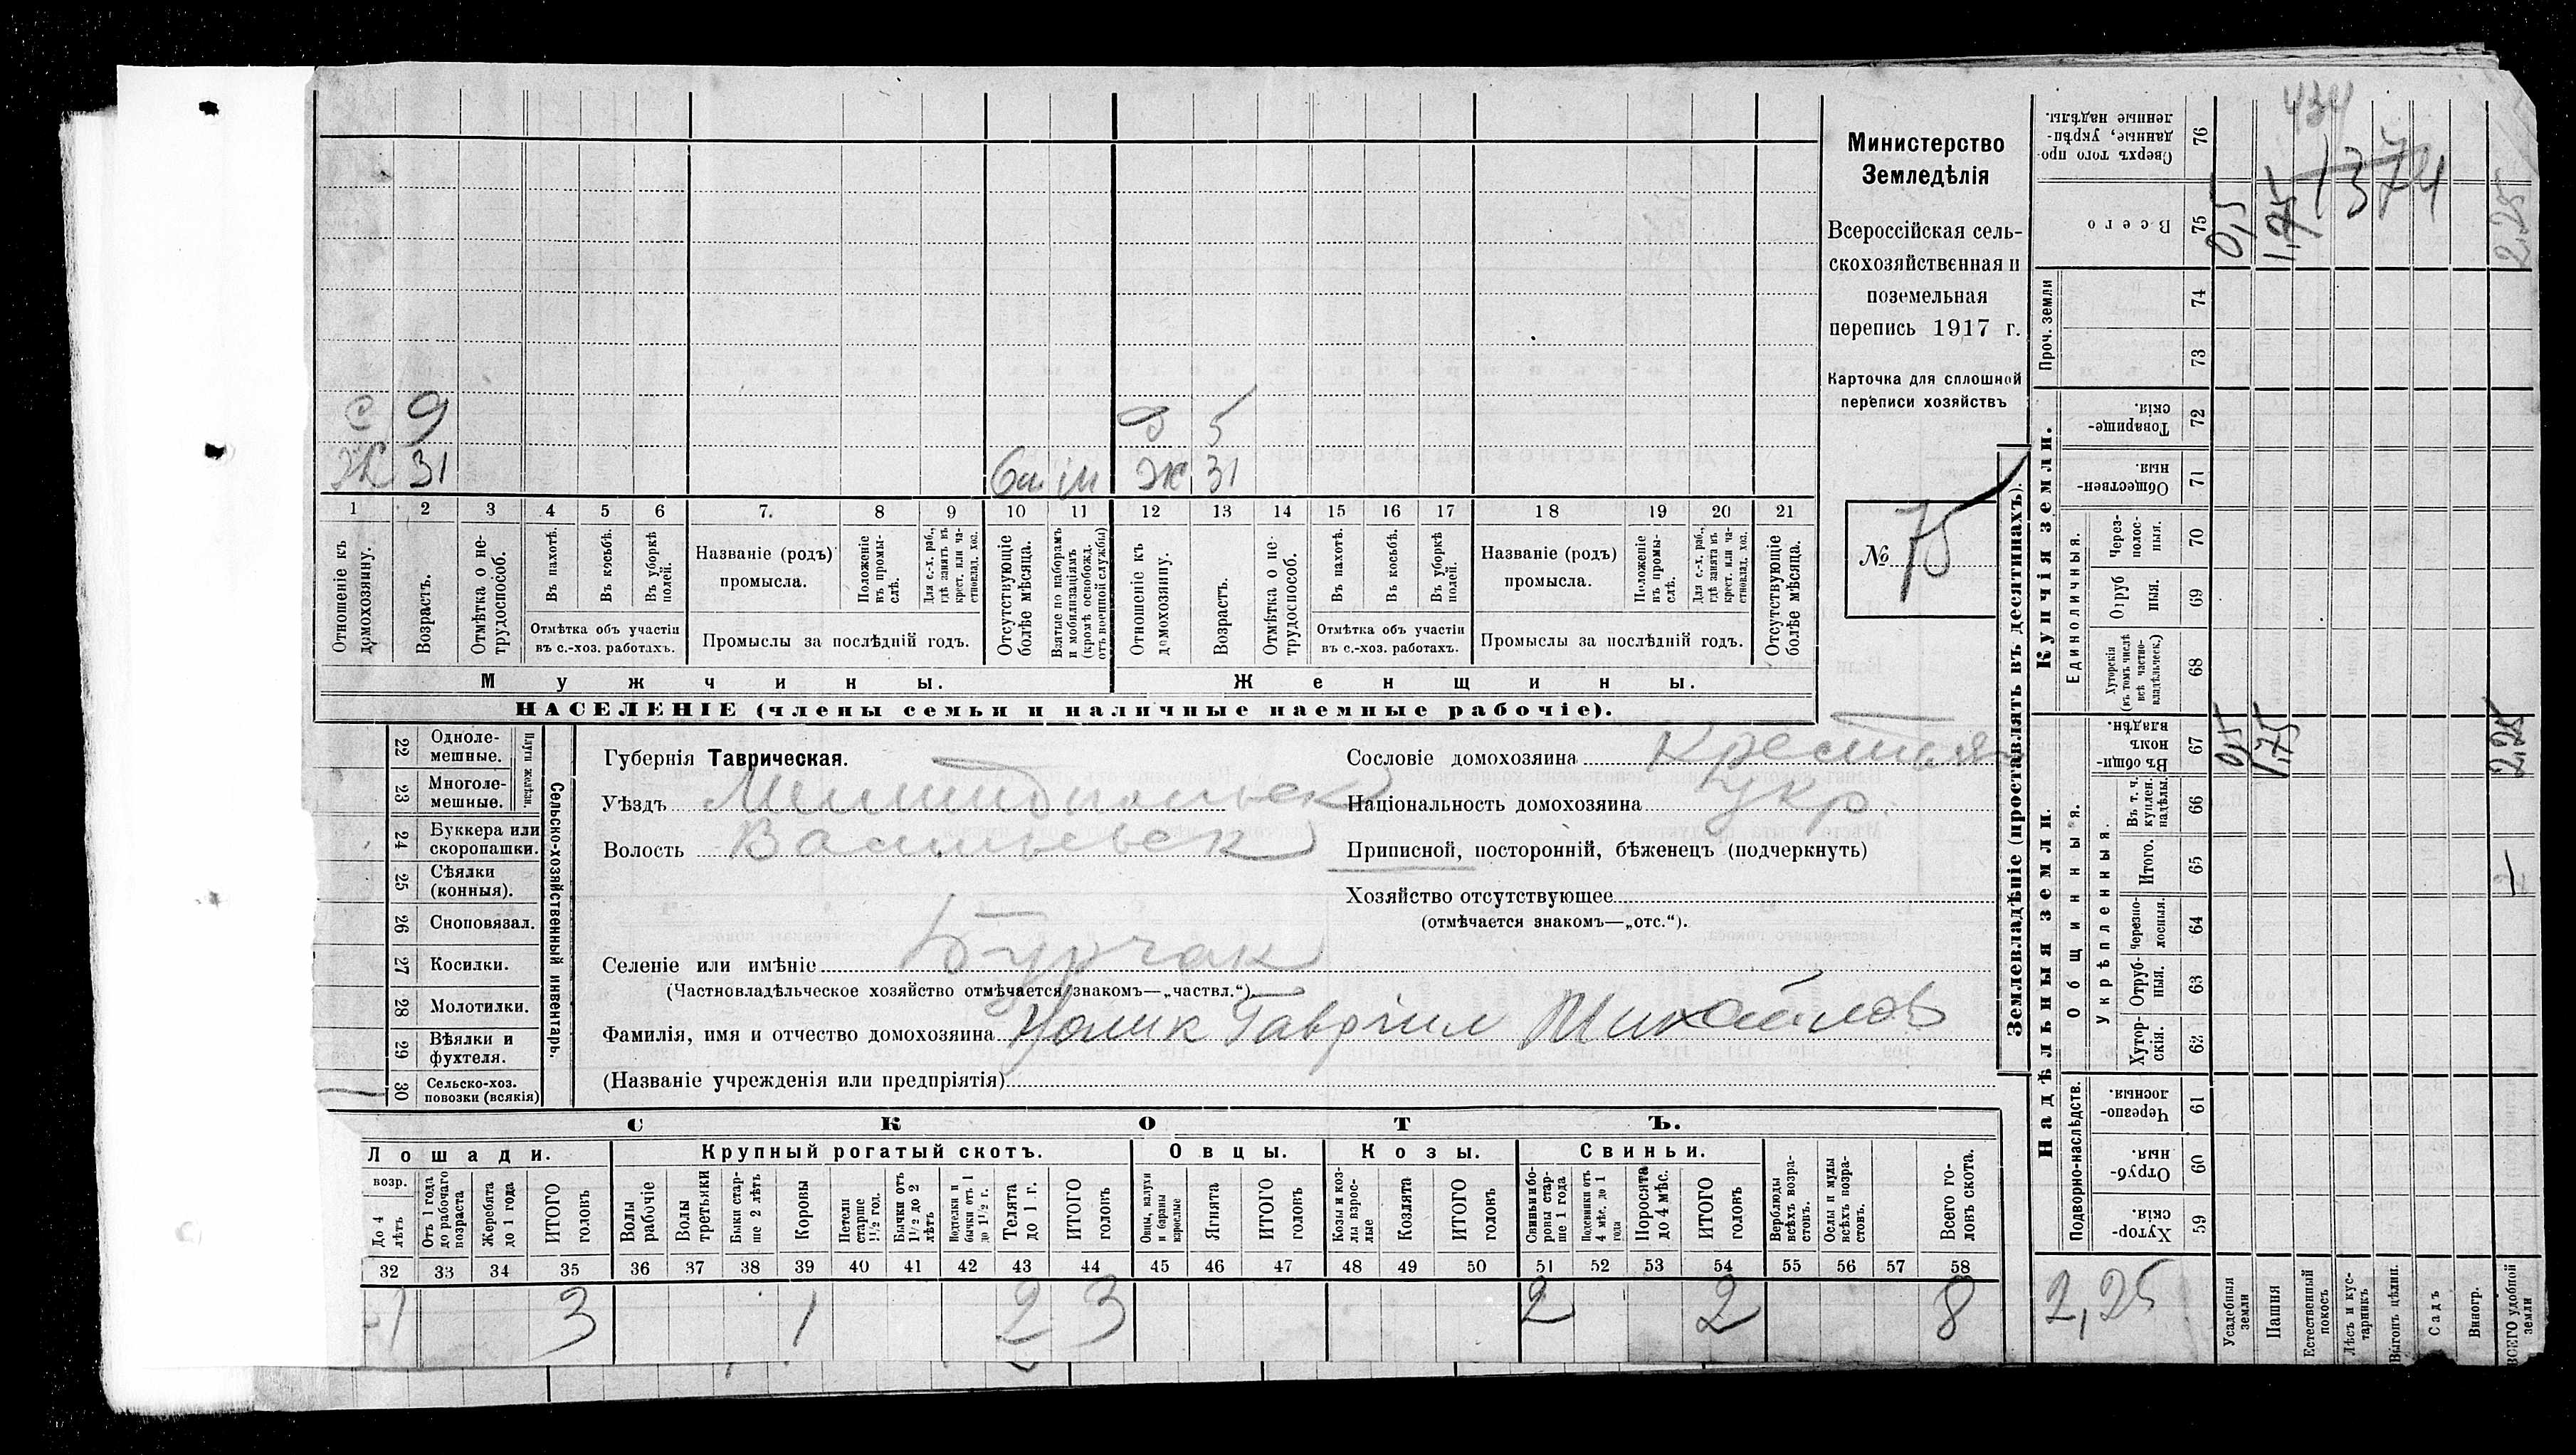 Министерство
Земледѣлія
Всероссійская сель-
скохозяйственная и
поземельная
перепись 1917 г.
Карточка для сплошной
переписи хозяйствъ
№ 75
с 9
Ж 31
д 5
Ж 31
1 2 3 4 5 6 7. 8 9 10 11 12 13 14 15 16 17 18 19 20 21
Отношеніе къ домохозяину.
Возрастъ.
Отмѣтка о не-трудоспособ.
Въ пахотѣ.
Въ косьбѣ.
Въ уборкѣ полей.
Отмѣтка объ участіи въ с.-хоз. работахъ.
Названіе (родъ) промысла.
Положеніе въ промы-слѣ.
Для с.-х. раб., гдѣ занятъ въ крест. или ча-стновлад. хоз.
Промыслы за послѣдній годъ.
Отсутствующіе болѣе мѣсяца.
Взятые по наборамъ и мобилизаціямъ (кромѣ освобожд. отъ военной службы)
Отношеніе къ домохозяину.
Возрастъ.
Отмѣтка о не-трудоспособ.
Въ пахотѣ.
Въ косьбѣ.
Въ уборкѣ полей.
Отмѣтка объ участіи въ с.-хоз. работахъ.
Названіе (родъ) промысла.
Положеніе въ промы-слѣ.
Для с.-х. раб., гдѣ занята въ крест. или ча-стновлад. хоз.
Промыслы за послѣдній годъ.
Отсутствующіе болѣе мѣсяца.
Мужчины. Женщины.
НАСЕЛЕНІЕ (члены семьи и наличные наемные рабочіе).
Сельско-хозяйственный инвентарь.
Плуги желѣзн.
22 Одноле-мешные.
23 Многоле-мешные.
24 Буккера или скоропашки.
25 Сѣялки (конныя).
26 Сноповязал.
27 Косилки.
28 Молотилки.
29 Вѣялки и фухтеля.
30 Сельско-хоз. повозки (всякія)
Губернія Таврическая.
Уѣздъ Мелитопольск
Волость Васильевск
Селеніе или имѣніе Бурчак
(Частновладѣльческое хозяйство отмѣчается знакомъ—„частвл.“).
Фамилія, имя и отчество домохозяина Гавріил Михайлов
(Названіе учрежденія или предпріятія)
Сословіе домохозяина Крестьян
Національность домохозяина укр.
Приписной, посторонній, бѣженецъ (подчеркнуть)
Хозяйство отсутствующее
(отмѣчается знакомъ—„отс.“).
СКОТЪ.
Лошади. Крупный рогатый скотъ. Овцы. Козы. Свиньи.
возр.
До 4 лѣтъ
Отъ 1 года до рабочаго возраста
Жеребята до 1 года
ИТОГО головъ
Волы рабочіе
Волы третьяки
Быки стар-ше 2 лѣтъ
Коровы
Нетели старше 1½ год.
Бычки отъ 1½ до 2 лѣтъ
Подтелки и бычки отъ 1 до 1½ г.
Телята до 1 г.
ИТОГО головъ
Овцы, валухи и бараны взрослые
Ягнята
ИТОГО головъ
Козы и коз-лы взрос-лые
Козлята
ИТОГО головъ
Свиньи и бо-ровы стар-ше 1 года
Подсвинки отъ 4 мѣс. до 1 года
Поросята до 4 мѣс.
ИТОГО головъ
Верблюды всѣхъ возра-стовъ.
Ослы и мулы всѣхъ возра-стовъ.
Всего го-ловъ скота.
32 33 34 35 36 37 38 39 40 41 42 43 44 45 46 47 48 49 50 51 52 53 54 55 56 57 58
1 3 1 2 3 2 2 8
Землевладѣніе (проставлять въ десятинахъ).
Надѣльныя земли. Купчія земли. Проч. земли
Подворно-наслѣдств.
Общинныя.
Укрѣпленныя.
Единоличныя.
59 Хутор-скія.
60 Отруб-ныя.
61 Черезпо-лосныя.
62 Хутор-скія.
63 Отруб-ныя.
64 Черезпо-лосныя.
65 Итого.
66 Въ т. ч. куплен. надѣлы.
67 Въ общин-номъ владѣн.
68 Хуторскія (въ томъ числѣ всѣ частно-владѣльческ.)
69 Отруб ныя.
70 Через-полос-ныя.
71 Обществен-ныя.
72 Товарище-скія.
73
74
75 Всего
76 Сверхъ того про-данные, укрѣп-ленные надѣлы.
434
1374
0,5 1,75 2,25
0,5 1,75 2,25
2,25
Усадебныя земли
Пашня
Естественный покосъ
Лѣсъ и кус-тарникъ
Выгонъ цѣлин.
Садъ
Виногр.
ВСЕГО удобной земли